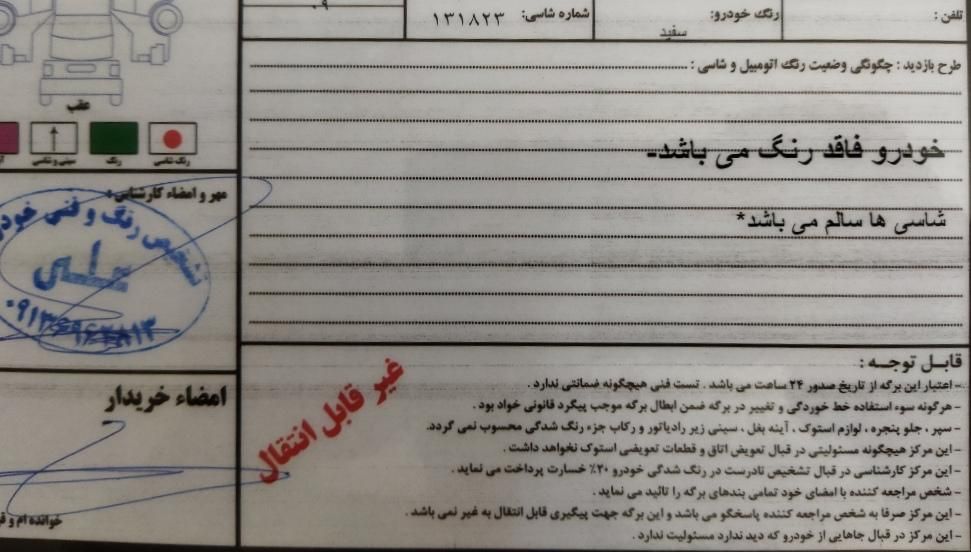 تلفن :
رنگ خودرو:
سفید
شماره شاسی: ۱۳۱۸۲۳
۰۹
طرح بازدید : چگونگی وضعیت رنگ اتومبیل و شاسی :
خودرو فاقد رنگ می باشد.
شاسی ها سالم می باشد*
عقب
رنگ شاسی
رنگ
سینی و شاسی
مهر و امضاء کارشناس :
تشخیص رنگ و فنی خودر
علی
امضاء خریدار
خوانده ام و
غیر قابل انتقال
قابل توجه :
- اعتبار این برگه از تاریخ صدور ۲۴ ساعت می باشد . تست فنی هیچگونه ضمانتی ندارد .
- هرگونه سوء استفاده خط خوردگی و تغییر در برگه ضمن ابطال برگه موجب پیگرد قانونی خواد بود .
- سپر ، جلو پنجره ، لوازم استوک ، آینه بغل ، سینی زیر رادیاتور و رکاب جزء رنگ شدگی محسوب نمی گردد.
- این مرکز هیچگونه مسئولیتی در قبال تعویض اتاق و قطعات تعویضی استوک نخواهد داشت .
- این مرکز کارشناسی در قبال تشخیص نادرست در رنگ شدگی خودرو ۲۰٪ خسارت پرداخت می نماید .
- شخص مراجعه کننده با امضای خود تمامی بندهای برگه را تائید می نماید .
- این مرکز صرفا به شخص مراجعه کننده پاسخگو می باشد و این برگه جهت پیگیری قابل انتقال به غیر نمی باشد .
- این مرکز در قبال جاهایی از خودرو که دید ندارد مسئولیت ندارد .